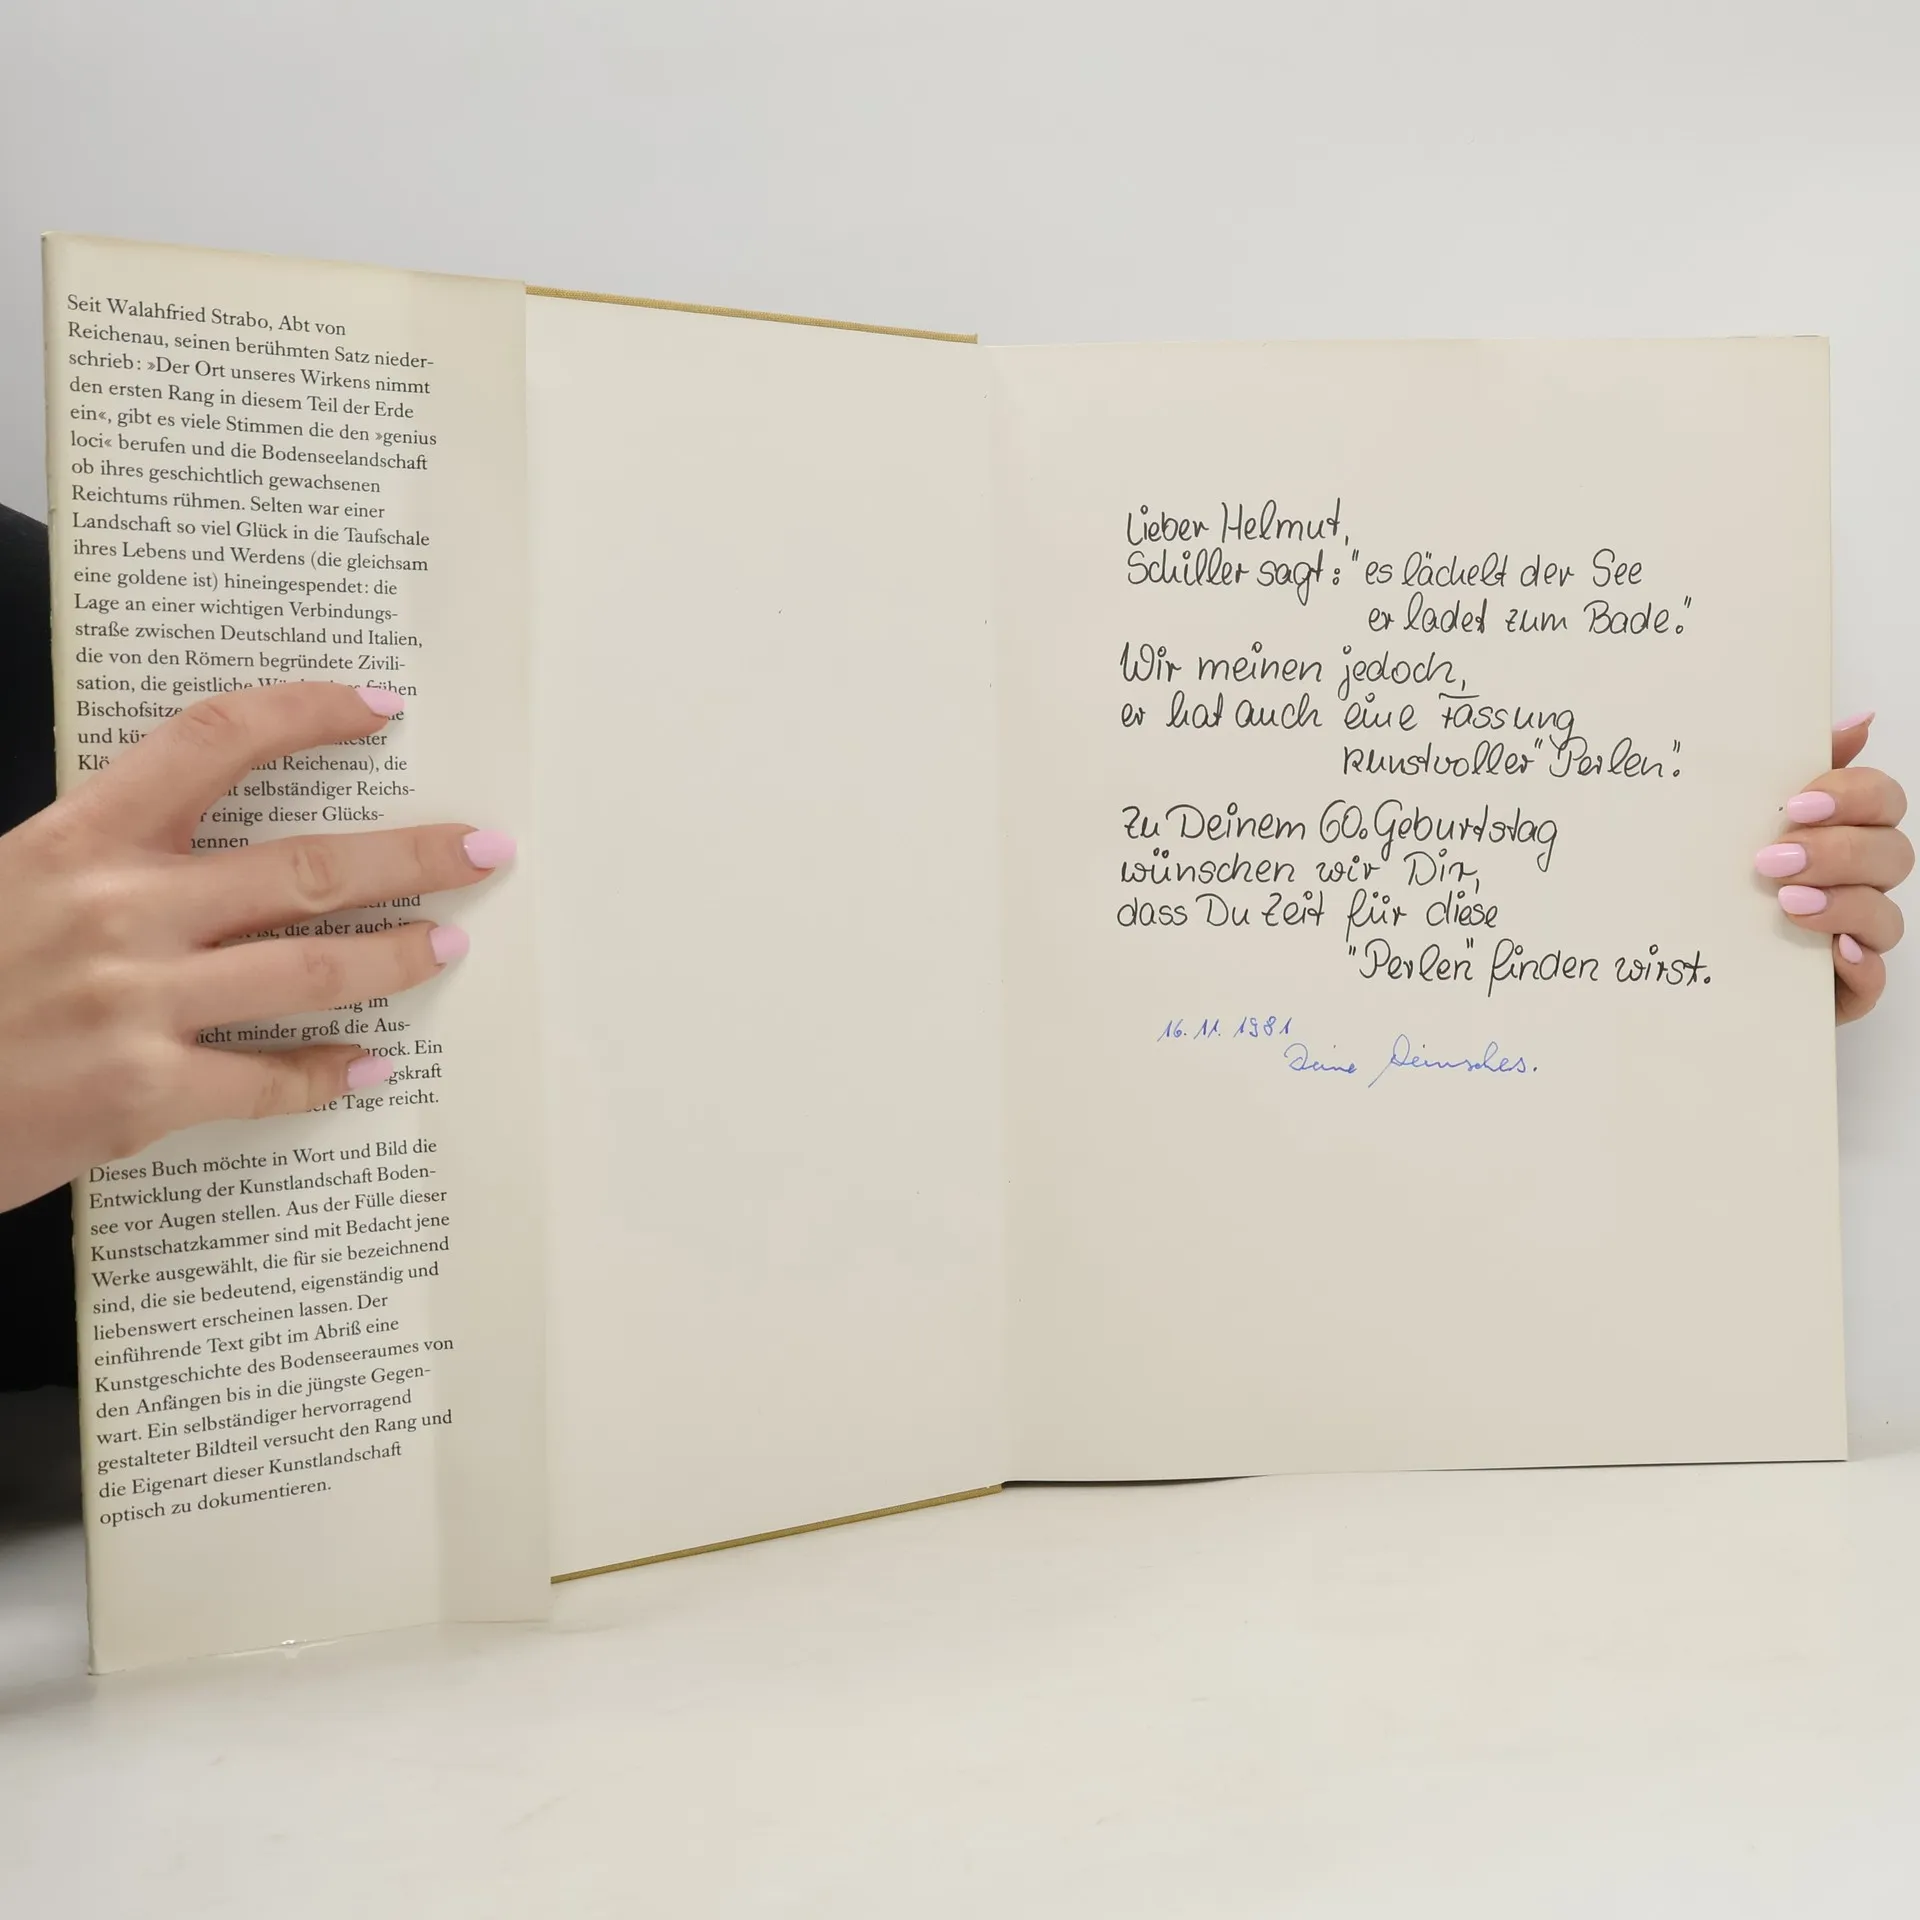 Seit Walahfried Strabo, Abt von
Reichenau, seinen berühmten Satz nieder-
schrieb: »Der Ort unseres Wirkens nimmt
den ersten Rang in diesem Teil der Erde
ein«, gibt es viele Stimmen die den »genius
loci« berufen und die Bodenseelandschaft
ob ihres geschichtlich gewachsenen
Reichtums rühmen. Selten war einer
Landschaft so viel Glück in die Taufschale
ihres Lebens und Werdens (die gleichsam
eine goldene ist) hineingespendet: die
Lage an einer wichtigen Verbindungs-
straße zwischen Deutschland und Italien,
die von den Römern begründete Zivili-
sation, die geistliche
Bischofsitze
und
Reichenau), die
selbständiger Reichs-
einige dieser Glücks-
und
die aber auch
im
minder groß die Aus-
Ein
Tage reicht.
Dieses Buch möchte in Wort und Bild die
Entwicklung der Kunstlandschaft Boden-
see vor Augen stellen. Aus der Fülle dieser
Kunstschatzkammer sind mit Bedacht jene
Werke ausgewählt, die für sie bezeichnend
sind, die sie bedeutend, eigenständig und
liebenswert erscheinen lassen. Der
einführende Text gibt im Abriß eine
Kunstgeschichte des Bodenseeraumes von
den Anfängen bis in die jüngste Gegen-
wart. Ein selbständiger hervorragend
gestalteter Bildteil versucht den Rang und
die Eigenart dieser Kunstlandschaft
optisch zu dokumentieren.
Lieber Helmut,
Schiller sagt: "es lächelt der See
er ladet zum Bade."
Wir meinen jedoch,
er hat auch eine Fassung
kunstvoller "Perlen".
Zu Deinem 60. Geburtstag
wünschen wir Dir,
dass Du Zeit für diese
"Perlen" finden wirst.
16. 11. 1981
Deine